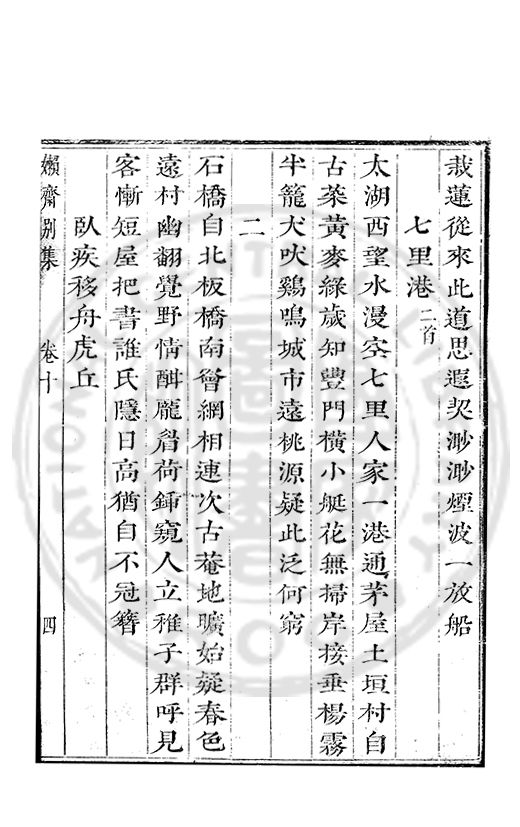 栽蓮從來此道思遐契渺渺煙波一放船
七里港二首
太湖西望水漫空七里人家一港通茅屋土垣村自
古菜黃麥綠歲知豐門橫小艇花無掃岸接垂楊霧
半籠犬吠鷄鳴城市遠桃源疑此泛何窮
二
石橋自北板橋南罾網相連次古菴地曠始疑春色
遠村幽翻覺野情酣龎眉荷鍤窺人立稚子群呼見
客慚短屋把書誰氏隱日高猶自不冠簪
臥疾移舟虎丘
嬾齋別集
卷十
四